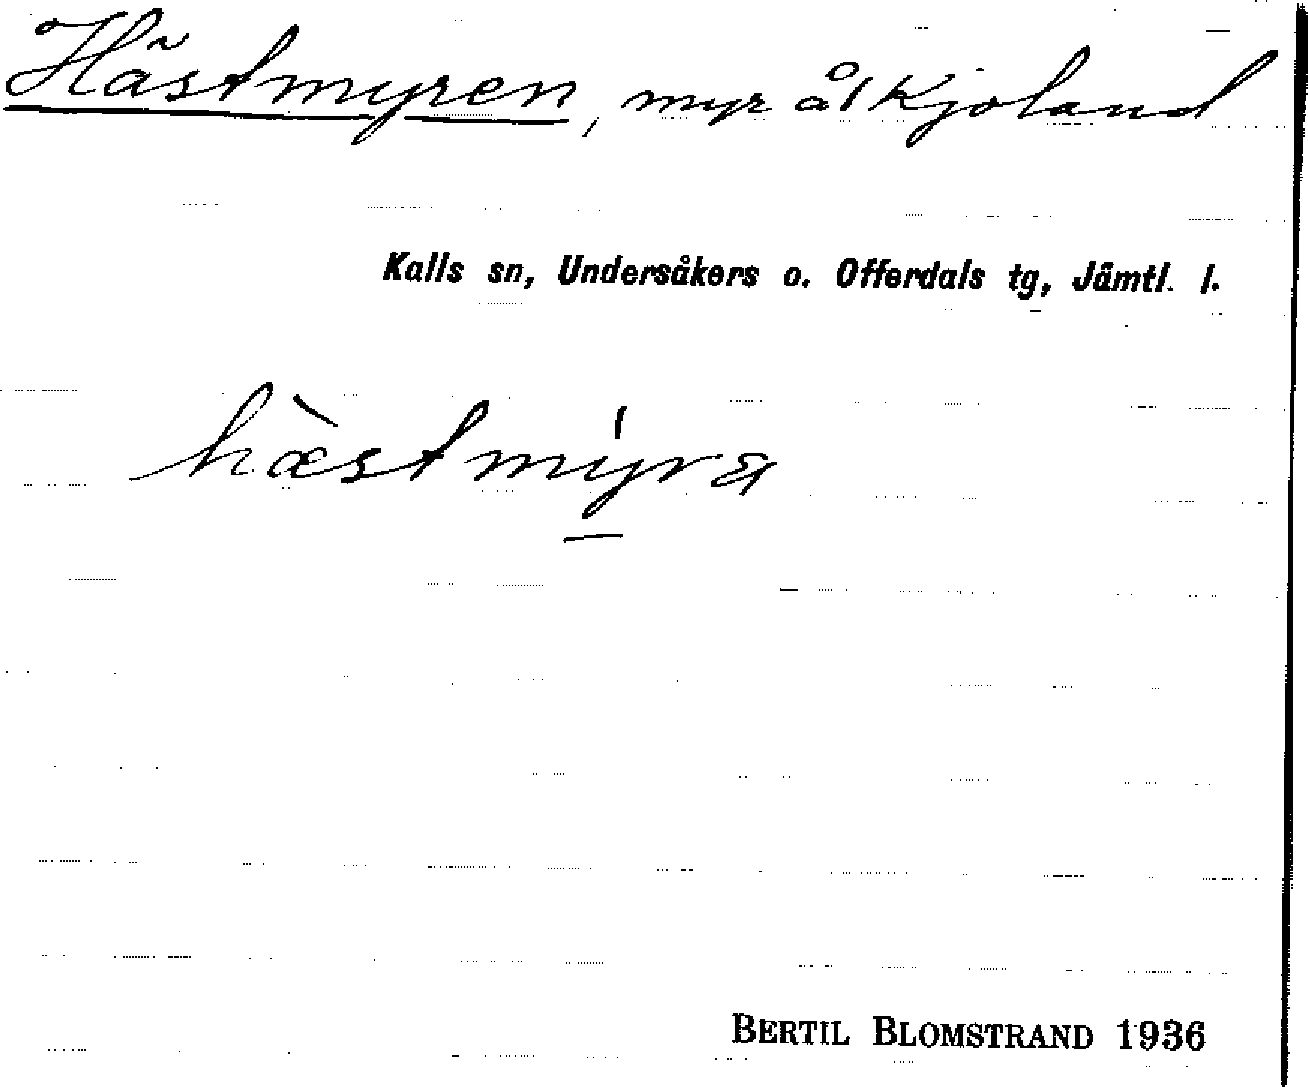 Hästmyren, myr å Kjoland
Kalls sn, Undersåkers o. Offerdals tg, Jämtl. l.
hæ̀stmýra
BERTIL BLOMSTRAND 1936